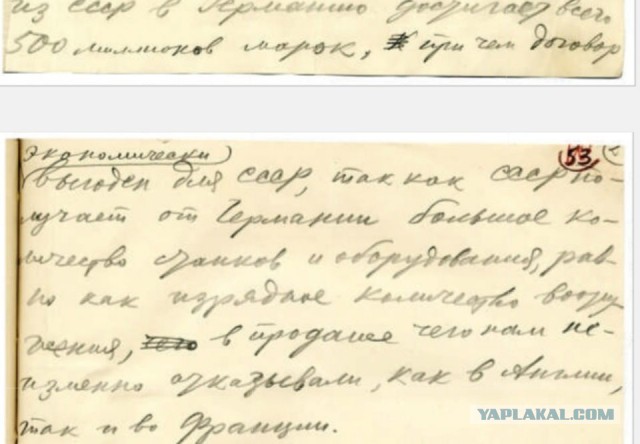 из СССР в Германию достигает всего
500 миллионов марок, при чем договор
экономически
53
выгоден для СССР, так как СССР по-
лучает от Германии большое ко-
личество станков и оборудования, рав-
но как изрядное количество воору-
жения, в продаже чего нам не-
изменно отказывали, как в Англии,
так и во Франции.
YAPLAKAL.COM